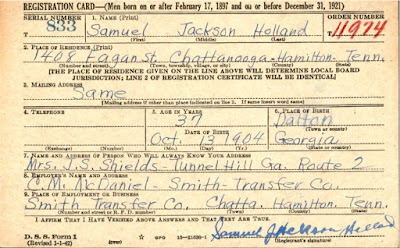 REGISTRATION CARD—(Men born on or after February 17, 1897 and on or before December 31, 1921)
SERIAL NUMBER 1. NAME (Print) ORDER NUMBER
833 Samuel Jackson Holland 11974
(First) (Middle) (Last)
2. PLACE OF RESIDENCE (Print)
1408 Fagan St. Chattanooga-Hamilton-Tenn.
(Number and street) (Town, township, village, or city) (County) (State)
[THE PLACE OF RESIDENCE GIVEN ON THE LINE ABOVE WILL DETERMINE LOCAL BOARD
JURISDICTION; LINE 2 OF REGISTRATION CERTIFICATE WILL BE IDENTICAL]
3. MAILING ADDRESS
Same
[Mailing address if other than place indicated on line 2. If same insert word same]
4. TELEPHONE 5. AGE IN YEARS 6. PLACE OF BIRTH
37 Dalton
DATE OF BIRTH (Town or county)
Oct. 13 1904 Georgia
(Exchange) (Number) (Mo.) (Day) (Yr.) (State or country)
7. NAME AND ADDRESS OF PERSON WHO WILL ALWAYS KNOW YOUR ADDRESS
Mrs. J.S. Shields-Tunnel Hill Ga. Route 2
8. EMPLOYER'S NAME AND ADDRESS
C.M. McDaniel-Smith-Transfer Co.
9. PLACE OF EMPLOYMENT OR BUSINESS
Smith Transfer Co. Chatta. Hamilton. Tenn.
(Number and street or R. F. D. number) (Town) (County) (State)
I AFFIRM THAT I HAVE VERIFIED ABOVE ANSWERS AND THAT THEY ARE TRUE.
D. S. S. Form 1
(Revised 1-1-42) Samuel Jackson Holland
(Registrant's signature)